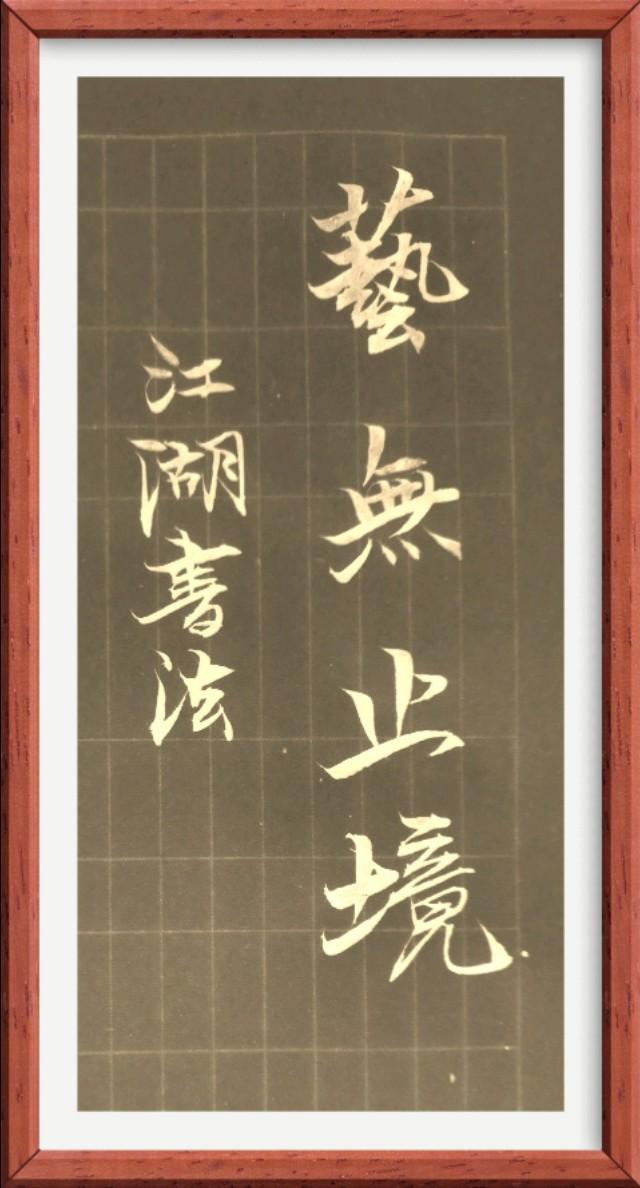 藝無止境
江湖書法